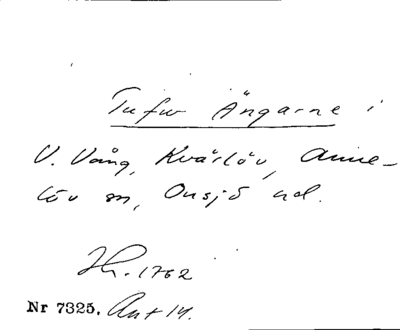 Tufvo Ängarne i
V. Vång, Kvärlöv, Anne-
löv sn, Onsjö hd.
Hh. 1762
Nr 7325. Ant 14.